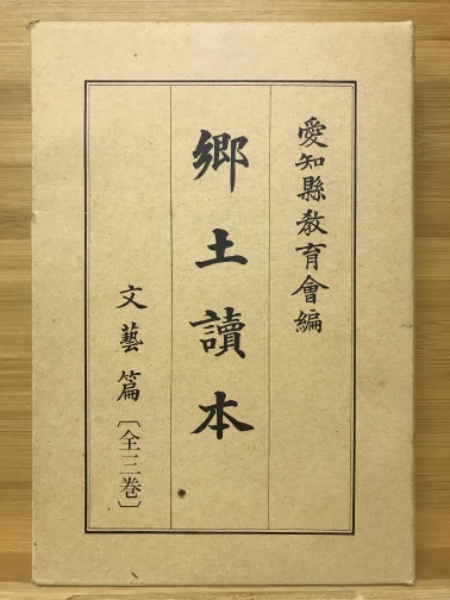 愛知縣教育會編
郷土讀本
文藝篇〔全三巻〕